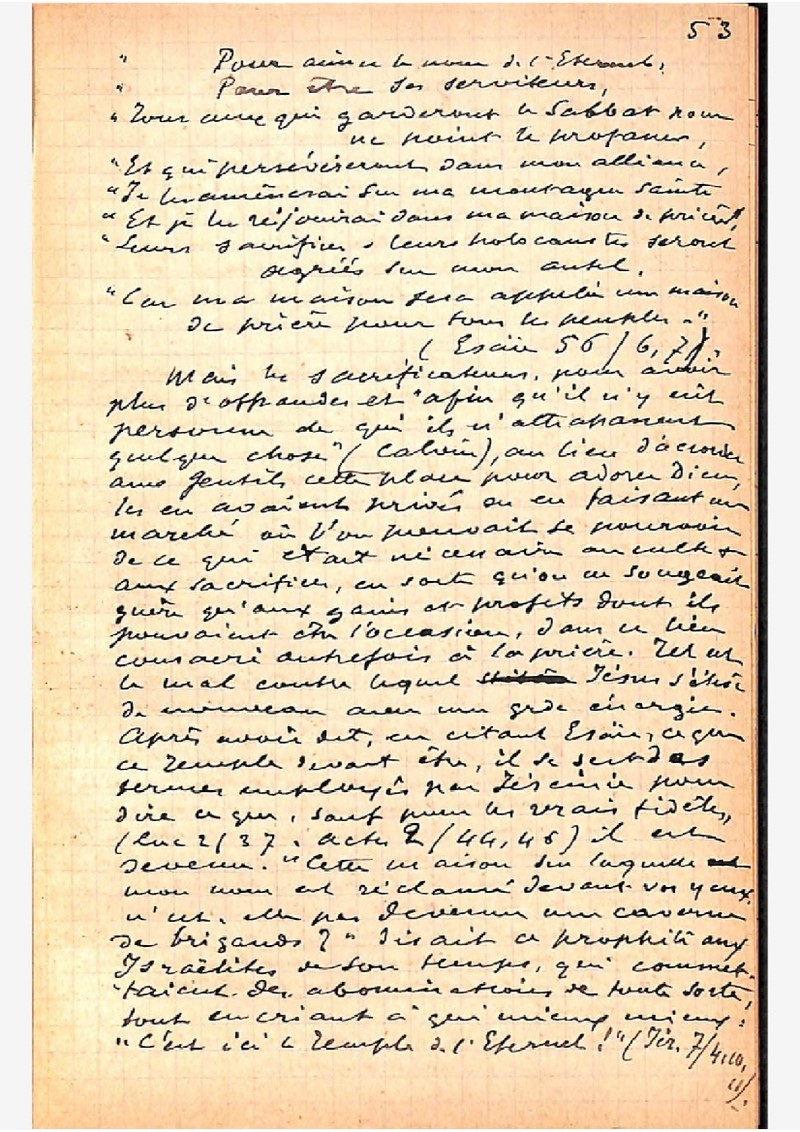 53
" Pour aimer le nom de l'Eternel,
" Pour être ses serviteurs,
" Tous ceux qui garderont le Sabbat pour
ne point le profaner,
"Et qui persévéreront dans mon alliance,
"Je les amènerai sur ma montagne sainte
" Et je les réjouirai dans ma maison de prière,
"Leurs sacrifices & leurs holocaustes seront
agréés sur mon autel,
"Car ma maison sera appelée une maison
de prière pour tous les peuples."
(Esaïe 56/6,7).
Mais les sacrificateurs, pour avoir
plus d'offrandes et "afin qu'il n'y eût
personne de qui ils n'attrapassent
quelque chose" (Calvin), au lieu d'accorder
aux Gentils cette place pour adorer Dieu,
les en avaient privés en en faisant un
marché où l'on pouvait se pourvoir
de ce qui était nécessaire au culte &
aux sacrifices, en sorte qu'on ne songeait
guère qu'aux gains et profits dont ils
pouvaient être l'occasion, dans ce lieu
consacré autrefois à la prière. Tel est
le mal contre lequel Jésus s'élève
de nouveau avec une grde énergie.
Après avoir dit, en citant Esaïe, ce que
ce Temple devait être, il se sert des
termes employés par Jérémie pour
dire ce que, sauf pour les vrais fidèles,
(Luc 2/37. Actes 2/44,46) il est
devenu. "Cette maison sur laquelle
mon nom est réclamé devant vos yeux
n'est-elle pas devenue une caverne
de brigands?" disait ce prophète aux
Israëlites de son temps, qui commet-
taient des abominations de toute sorte,
tout en criant à qui mieux mieux:
"C'est ici le Temple de l'Eternel!" (Jér. 7/4,10,
11).